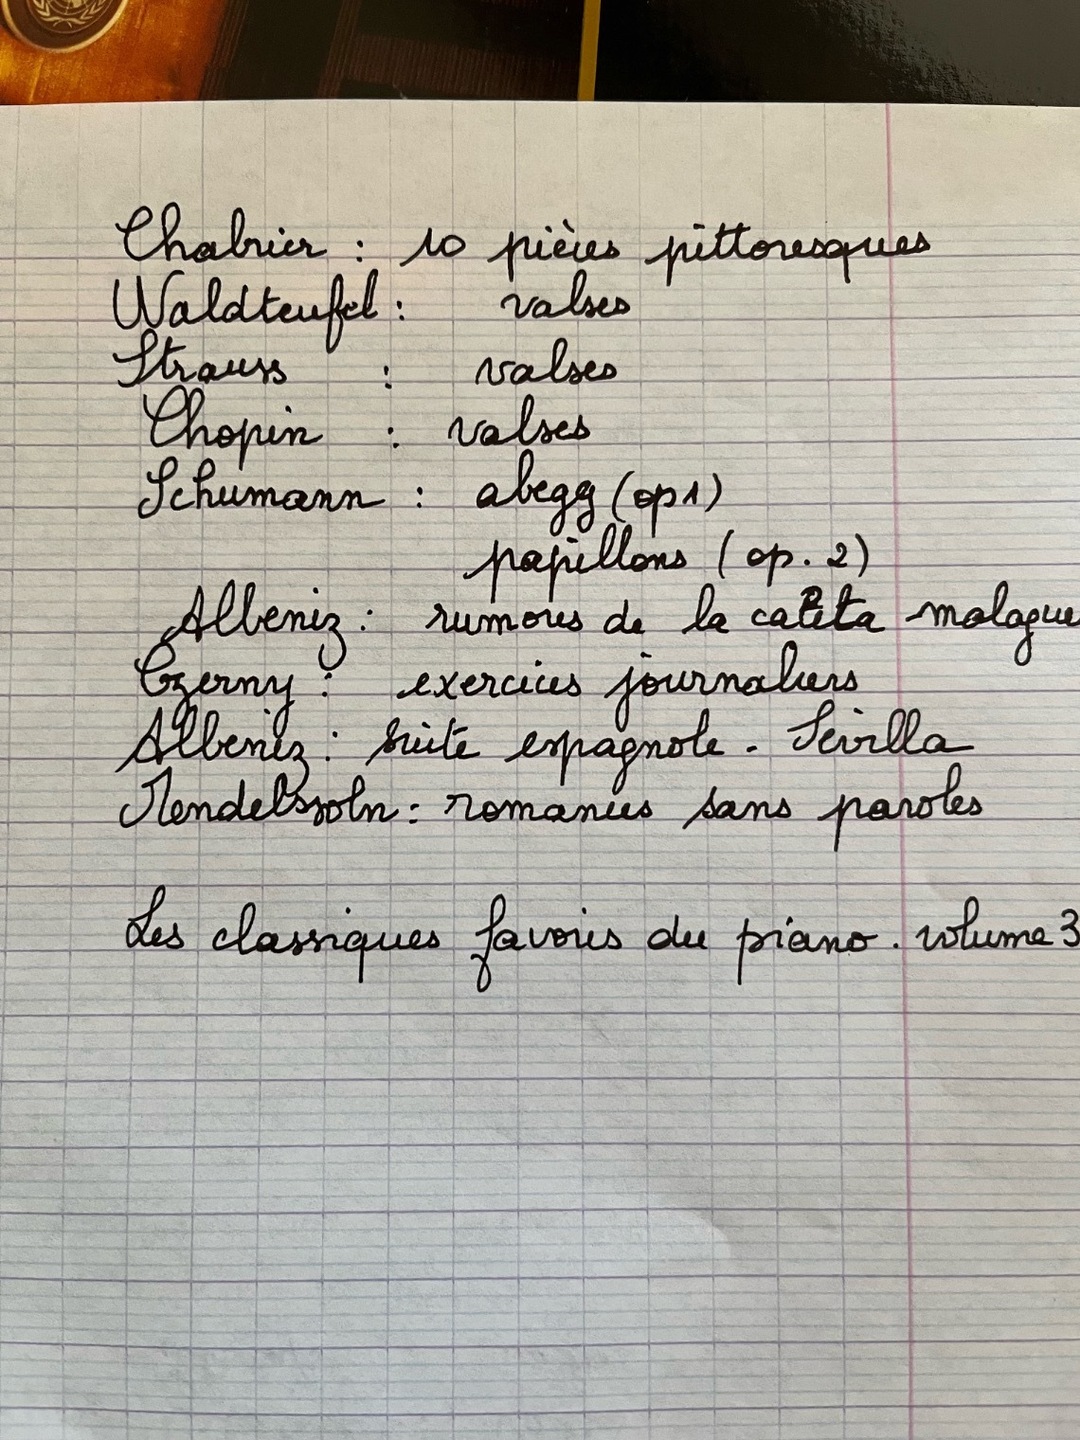 Chabrier : 10 pièces pittoresques
Waldteufel : valses
Strauss : valses
Chopin : valses
Schumann : abegg (op1)
papillons (op. 2)
Albeniz : rumores de la caleta malague
Czerny : exercices journaliers
Albeniz : suite espagnole . Sevilla
Mendelssoln : romances sans paroles
Les classiques favoris du piano . volume 3